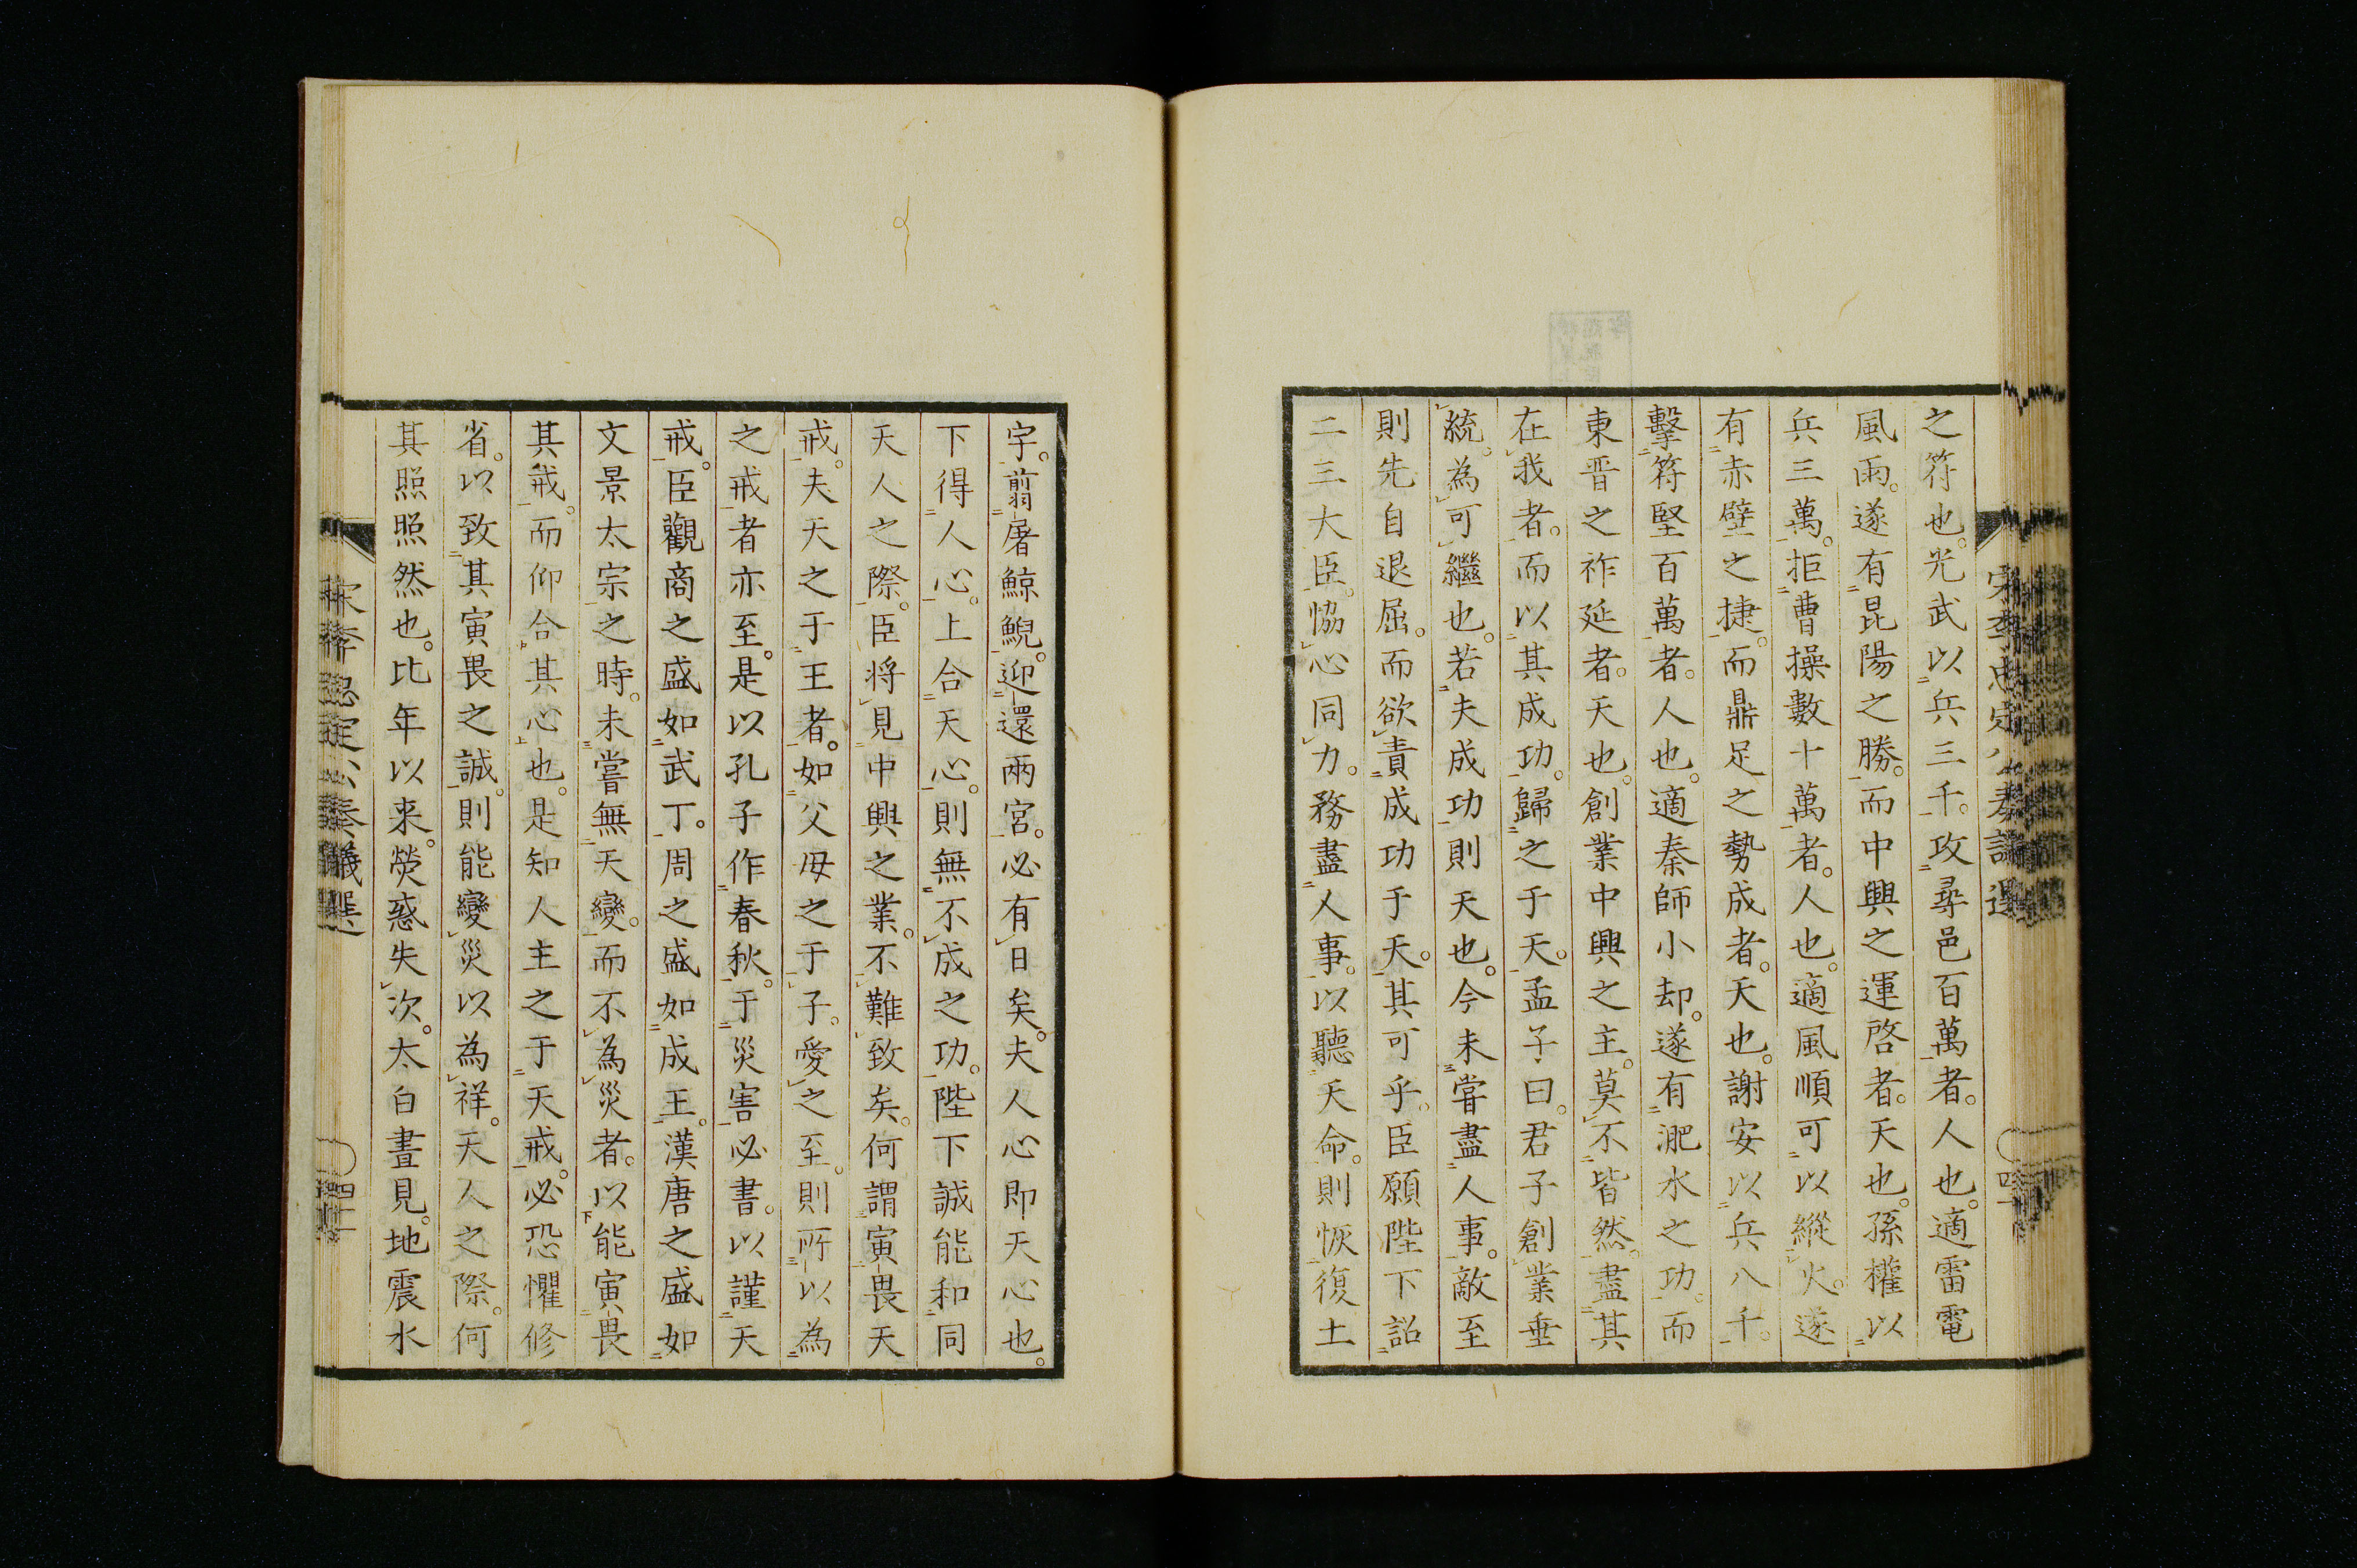 之符也。光武以兵三千。攻尋邑百萬者。人也。適雷電
風雨。遂有昆陽之勝。而中興之運啓者。天也。孫權以
兵三萬。拒曹操數十萬者。人也。適風順可以縱火。遂
有赤壁之捷。而鼎足之勢成者。天也。謝安以兵八千。
擊符堅百萬者。人也。適秦師小却。遂有淝水之功。而
東晋之祚延者。天也。創業中興之主。莫不皆然。盡其
在我者。而以其成功。歸之于天。孟子曰。君子創業垂
統。為可繼也。若夫成功則天也。今未嘗盡人事。敵至
則先自退屈。而欲責成功于天。其可乎。臣願陛下詔
二三大臣。恊心同力。務盡人事。以聽天命。則恢復土
宇。翦屠鯨鯢。迎還兩宮。必有日矣。夫人心即天心也。
下得人心。上合天心。則無不成之功。陛下誠能和同
天人之際。臣将見中興之業。不難致矣。何謂寅畏天
戒。夫天之于王者。如父母之于子。愛之至。則所以為
之戒者亦至。是以孔子作春秋。于災害必書。以謹天
戒。臣觀商之盛如武丁。周之盛如成王。漢唐之盛如
文景太宗之時。未嘗無天變。而不為災者。以能寅畏
其戒。而仰合其心也。是知人主之于天戒。必恐懼修
省。以致其寅畏之誠。則能變災以為祥。天人之際。何
其照照然也。比年以来。熒惑失次。太白晝見。地震水
宋李忠定公奏議選